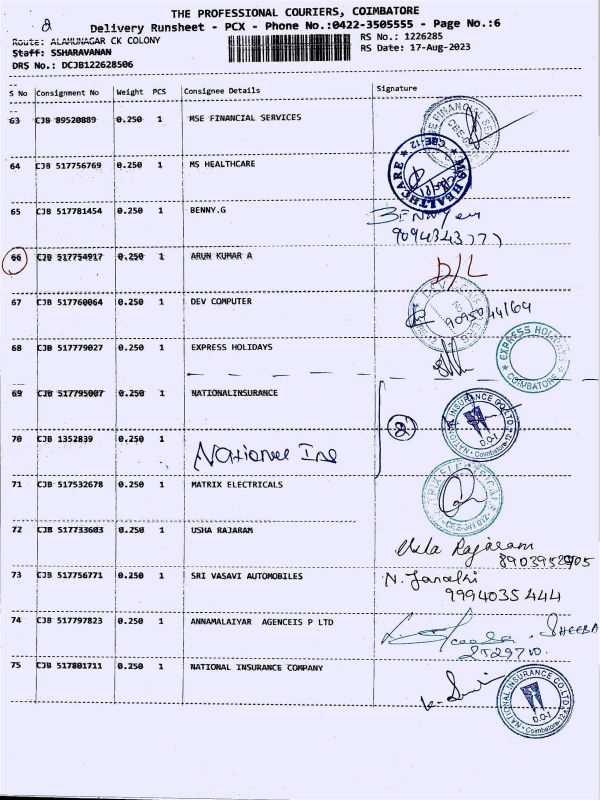 2
THE PROFESSIONAL COURIERS, COIMBATORE
Delivery Runsheet - PCX - Phone No.:0422-3505555 - Page No.:6
Route: ALAMUNAGAR CK COLONY
RS No.: 1226285
Staff: SSHARAVANAN
RS Date: 17-Aug-2023
DRS No.: DCJB122628506
S No Consignment No Weight PCS Consignee Details Signature
63 CJB 89520889 0.250 1 MSE FINANCIAL SERVICES
64 CJB 517756769 0.250 1 MS HEALTHCARE
MS HEALTHCARE CBE-12
65 CJB 517781454 0.250 1 BENNY.G
9094343777
66 CJB 517754917 0.250 1 ARUN KUMAR A D/L
67 CJB 517760064 0.250 1 DEV COMPUTER
9095044164
68 CJB 517779027 0.250 1 EXPRESS HOLIDAYS
EXPRESS HOLIDAYS COIMBATORE
69 CJB 517795007 0.250 1 NATIONALINSURANCE
2
NATIONAL INSURANCE CO.LTD. D.O-I Coimbatore-12
70 CJB 1352839 0.250 1 National Ins
71 CJB 517532678 0.250 1 MATRIX ELECTRICALS
72 CJB 517733603 0.250 1 USHA RAJARAM
Usha Rajaram
73 CJB 517756771 0.250 1 SRI VASAVI AUTOMOBILES
N. Janaki
9994035444
74 CJB 517797823 0.250 1 ANNAMALAIYAR AGENCEIS P LTD
SHEEBA
75 CJB 517801711 0.250 1 NATIONAL INSURANCE COMPANY
NATIONAL INSURANCE CO.LTD. D.O-I Coimbatore-12